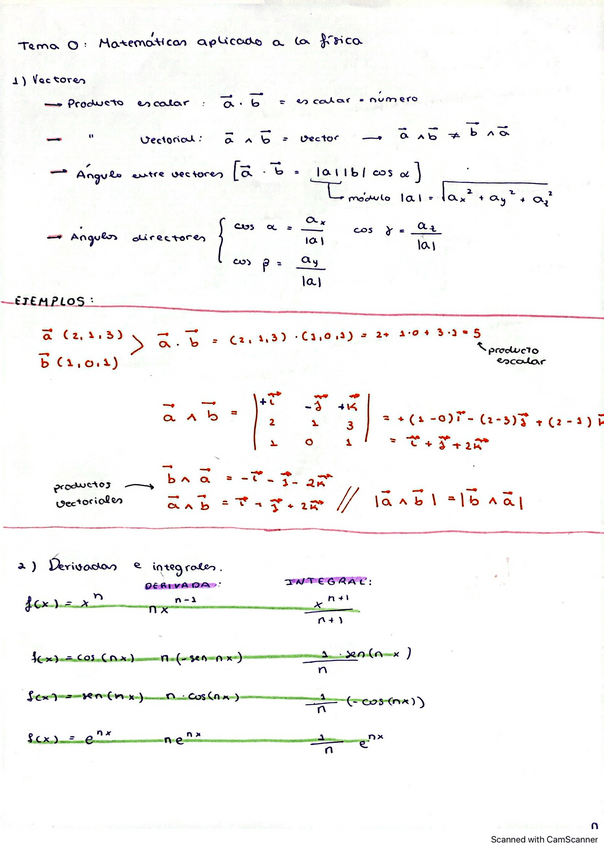 Tema 0: Matemáticas aplicado a la física
1) Vectores
→ Producto escalar : a⃗ · b⃗ = escalar = número
→ " Vectorial: a⃗ ∧ b⃗ = vector → a⃗ ∧ b⃗ ≠ b⃗ ∧ a⃗
→ Ángulo entre vectores [a⃗ · b⃗ = |a||b| cos α]
módulo |a| = √(ax² + ay² + az²)
→ Ángulos directores { cos α = ax/|a| cos γ = az/|a|
cos β = ay/|a|
EJEMPLOS:
a⃗ (2,1,3)
b⃗ (1,0,1)
a⃗ · b⃗ = (2,1,3) · (1,0,1) = 2+ 1·0 + 3·1 = 5
producto escalar
a⃗ ∧ b⃗ = | +i⃗ -j⃗ +k⃗ | = +(1-0)i⃗ - (2-3)j⃗ + (2-1) k⃗
2 1 3
1 0 1 = i⃗ + j⃗ + 2k⃗
productos vectoriales → b⃗ ∧ a⃗ = -i⃗ - j⃗ - 2k⃗
a⃗ ∧ b⃗ = i⃗ + j⃗ + 2k⃗ // |a⃗ ∧ b⃗| = |b⃗ ∧ a⃗|
2) Derivadas e integrales.
DERIVADA: INTEGRAL:
f(x) = xⁿ nxⁿ⁻¹ xⁿ⁺¹/n+1
f(x) = cos(nx) n(-sen nx) 1/n · sen(n·x)
f(x) = sen(nx) n·cos(nx) 1/n (-cos(nx))
f(x) = eⁿˣ neⁿˣ 1/n eⁿˣ
n
Scanned with CamScanner